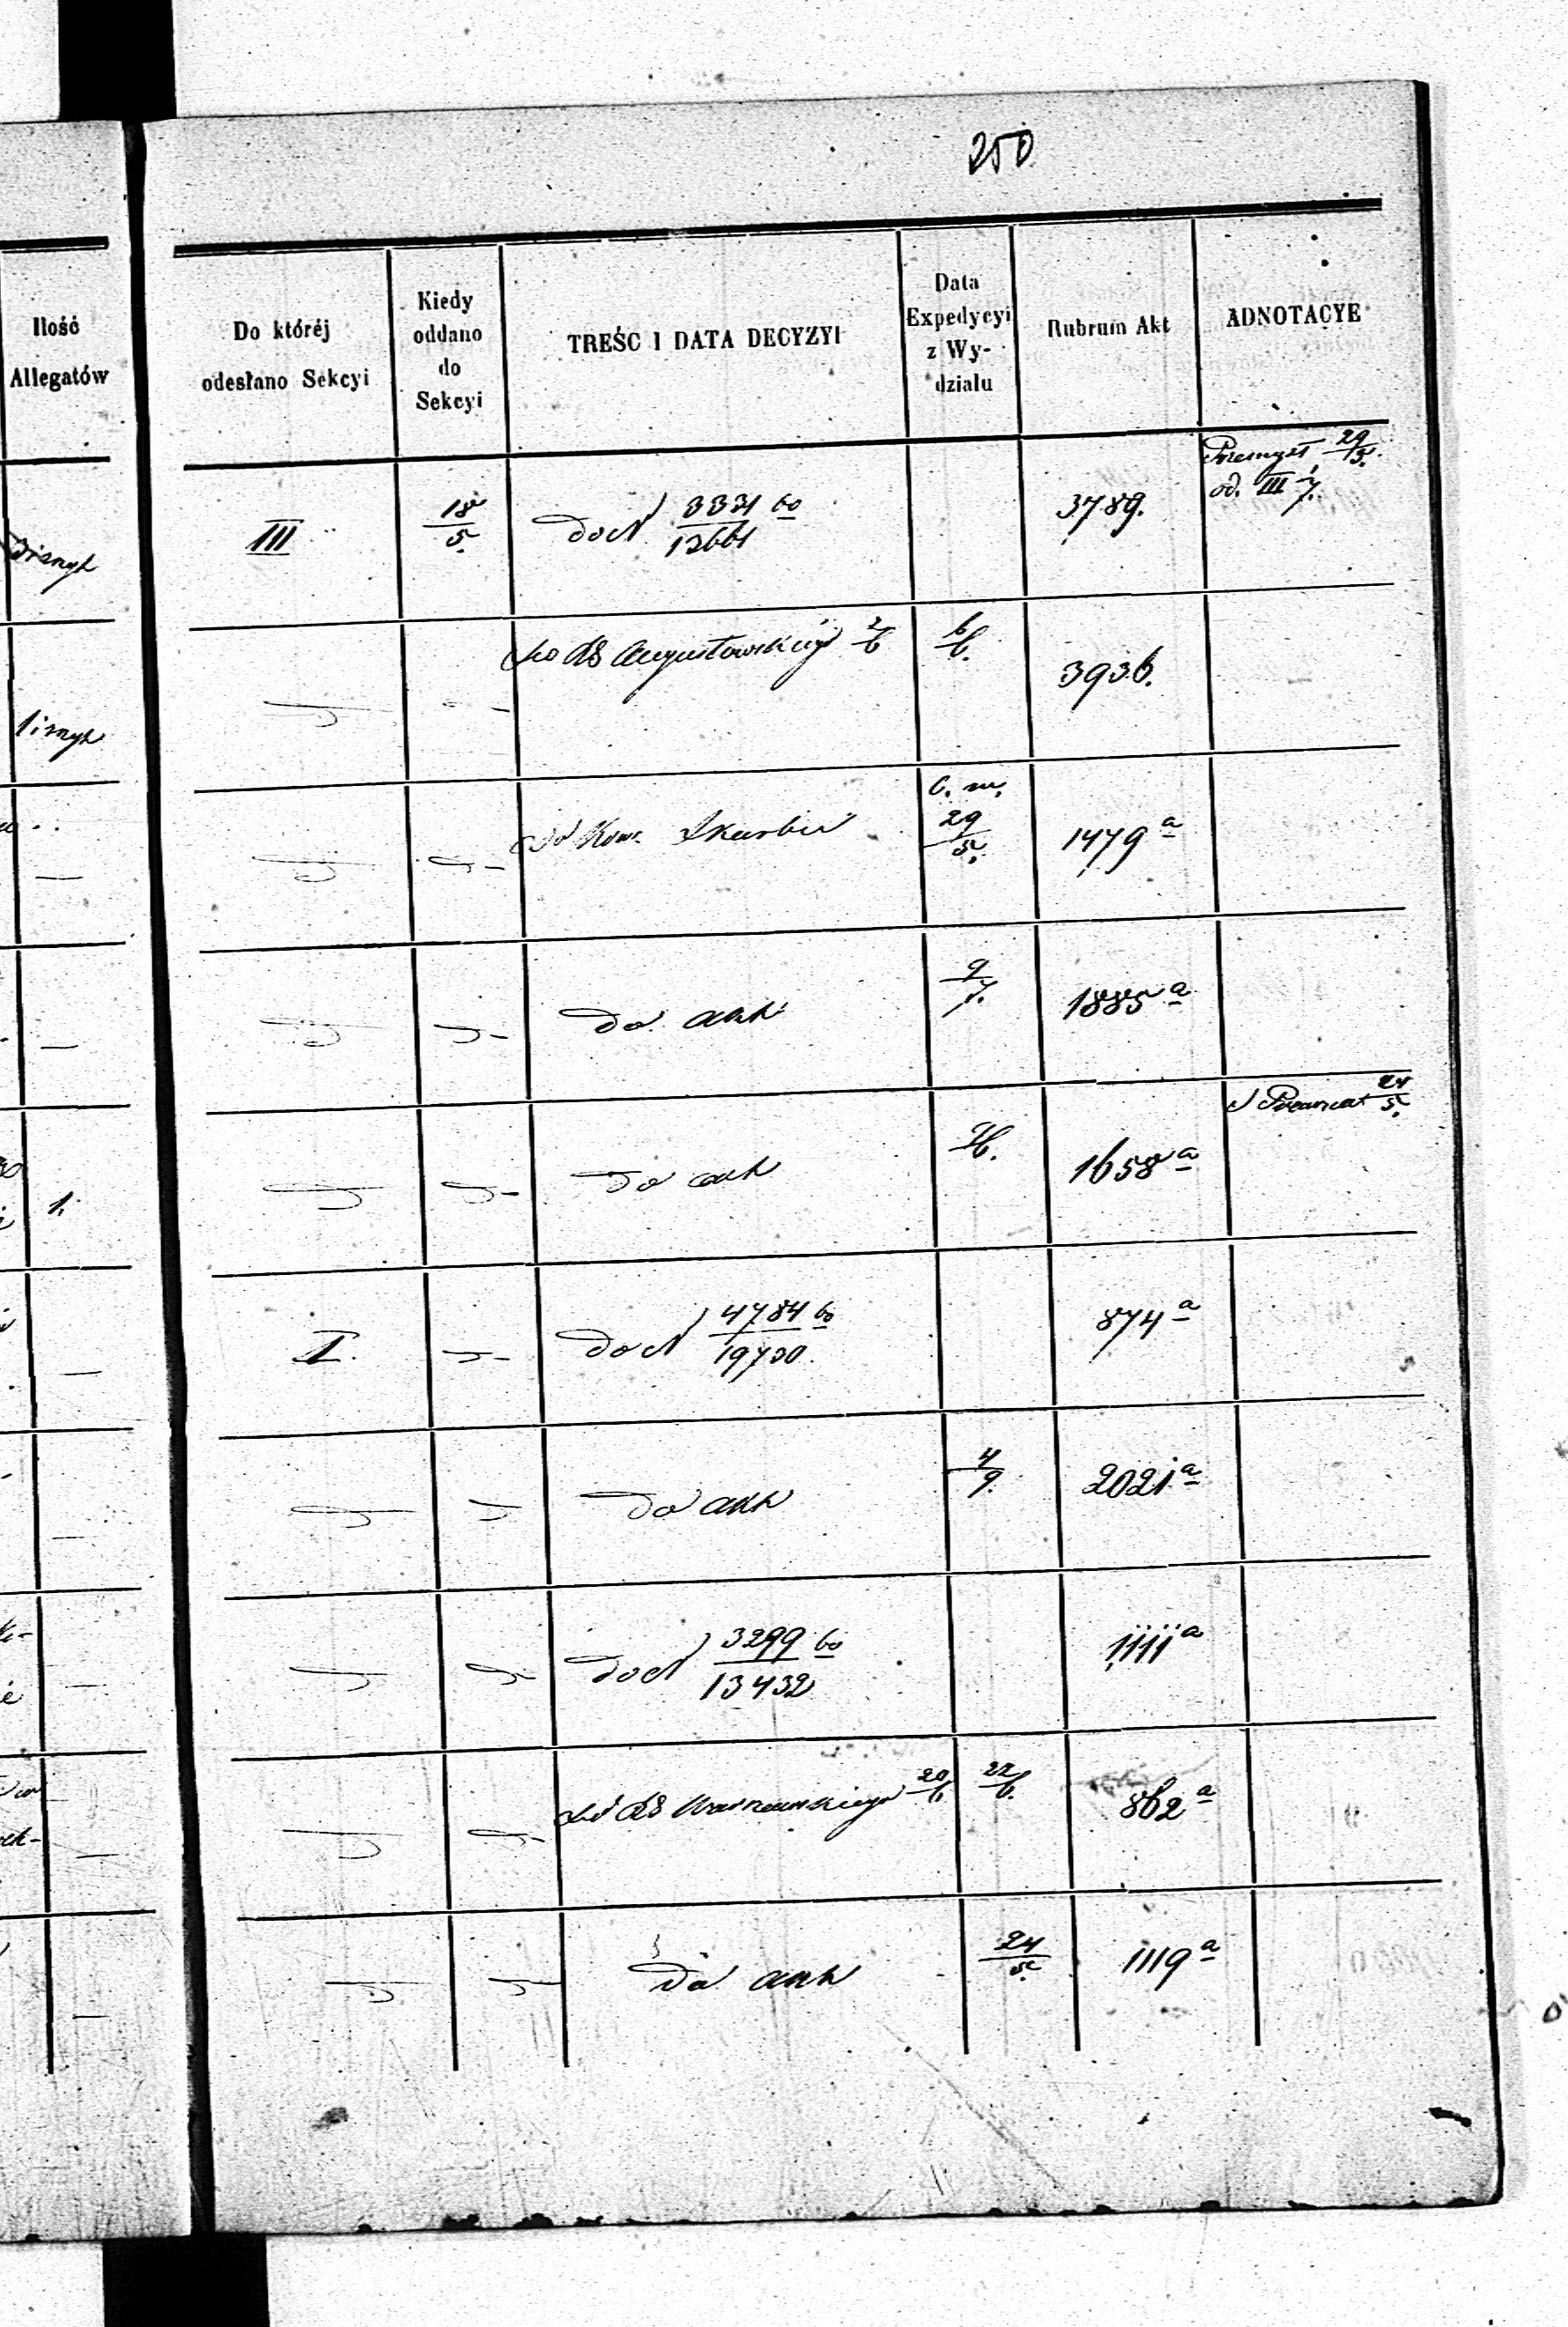 250
Ilość
Allegatów
Do któréj
odesłano Sekcyi
Kiedy
oddano
do
Sekcyi
TREŚĆ I DATA DECYZYI
Data
Expedycyi
z Wy-
działu
Rubrum Akt
ADNOTACYE
III
18/5.
do N 3331 60/13661
3789.
Przemysł 29/5.
od. III 1/7.
do RG Augustowskiego 2/6
6/6.
3936.
Do Kom. Skarbu
C. m.
29/5.
1479 a
do akt
9/7.
1885 a
1.
do akt
1658 a
24/5.
I.
do N 4784 60/19730.
874 a
do akt
4/9.
2021 a
do N 3299 60/13432
1111 a
do RG Warszawskiego 20/6
22/6.
862 a
do akt
24/5
1119 a